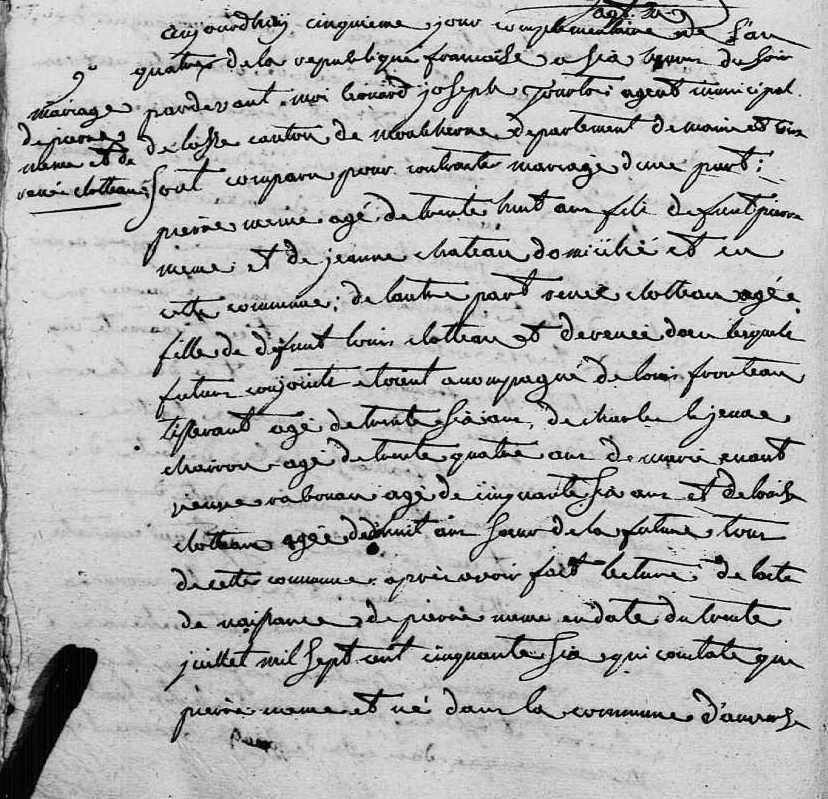 aujourdhuy cinquieme jour complementaire de l'an
quatre de la republique francaise a six heures du soir
9e
mariage
de pierre
meme et de
renée clotteau
pardevant moi leonard joseph agent municipal
canton de departement de maine et
sont comparu pour contracter mariage d'une part:
pierre meme agé de trente huit ans fils de funt pierre
meme et de jeanne chateau domicilié et en
cette commune; de lautre part renée clotteau agée
fille de defunt louis clotteau et de renée lesquels
futurs conjoints etoient acompagné de louis fronteau
tisserant agé de trente six ans, de charles lejeune
charron agé de trente quatre ans de marie
agé de cinquante six ans et de
clotteau agée de huit ans soeur de la future tous
de cette commune. apres avoir fait lecture de lacte
de naissance de pierre meme en date du trente
juillet mil sept cent cinquante six qui constate que
pierre meme et né dans la commune d'auverse